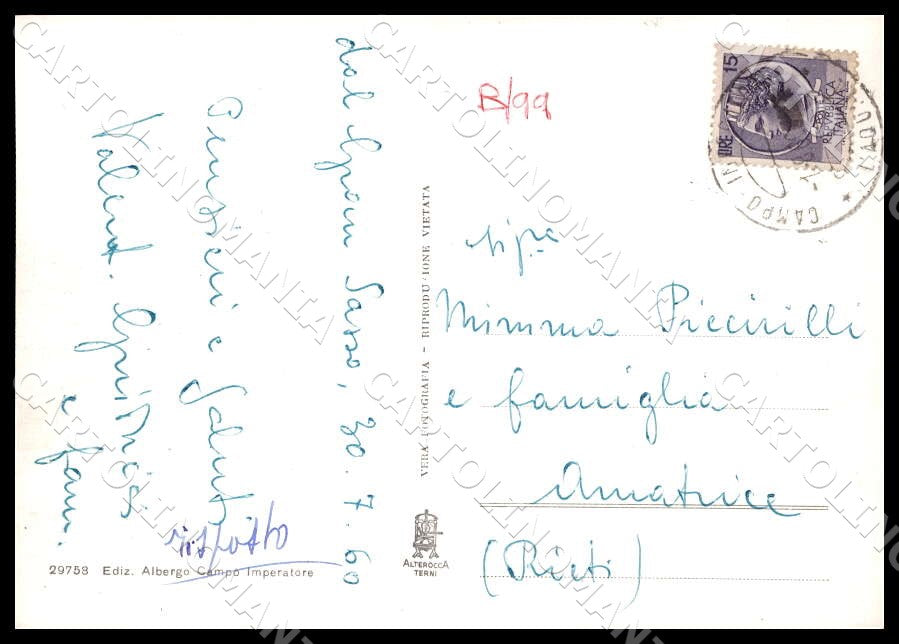 dal Gran Sasso, 30.7.60
Pensieri e Saluti
Valent.
e fam.
risposto
29758 Ediz. Albergo Campo Imperatore
VERA FOTOGRAFIA - RIPRODUZIONE VIETATA
ALTEROCCA
TERNI
B/99
LIRE 15
REPUBBLICA
ITALIANA
CAMPO
Sig.ra
Mimma Piccirilli
e famiglia
Amatrice
(Rieti)
CARTOLINOMANIA